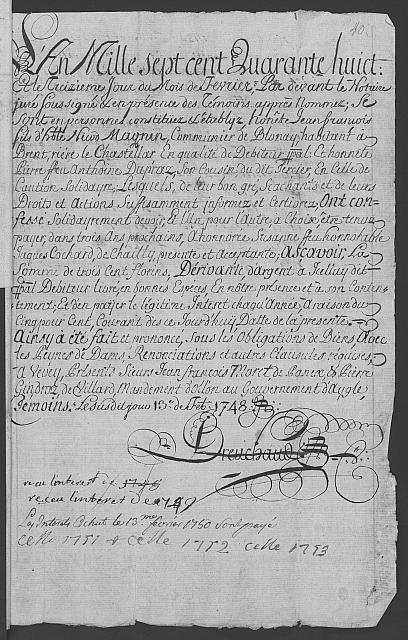 40.
L'An Mille sept cent Quarante huict:
Et le treizieme Jour du Mois de Fevrier; Par devant le Notaire
juré soussigné & en presence des Témoins apprès Nommez; Se
sont en personnes constituez & établyz, honnête Jean françois
feu d'htte Nicod Magnin, Communier de Blonay habitant à
Brent, riere le Chastellar En qualité de Debiteur ppal & honnête
Pierre feu Anthoine Dupraz, Son Cousin, du dit Tercier, En Celle de
Caution Solidayre, Lesquels, de leur bon gré, Scachants et de leurs
Droits et Actions Suffisamment informez et Certiorez, Ont con-
fessé Solidayrement devoir, et l'Un, pour l'Autre, à Choix, être tenus
payer, dans trois Ans prochains, à honnorée Susanne feu honnorable
Jaques Cochard, de Chailly, presente et Acceptante, Ascavoir La
Somme de trois Cent florins, Dérivante d'argent à Icelluy dit
ppal Debiteur livré, en bonnes Especes, En nôtre presence et à son Conten-
tement; Et d'en payer le légitime Interet chaqu'Année, à raison du
Cinq pour Cent, Courant dès ce Jourd'huiy Datte de la presente.
Ainsy à été fait et prononcé, Sous les Obligations de Biens, Avec
les Peynes de Dams, Renonciations et autres Clausules requises,
à Vevey, Présents Sieurs Jean françois Moret de Panex, & Pierre
Gindroz, de Villard, Mandement d'ollon au Gouvernement d'Aygle
Temoins. Les susdit jour 13e. de Febr: 1748.
Preuchaud
recu l'interet de 1748
recau l'interet de 1749
Les Interets Echut le 13me fevrier 1750 sont payé
celle 1751 & celle 1752 celle 1753